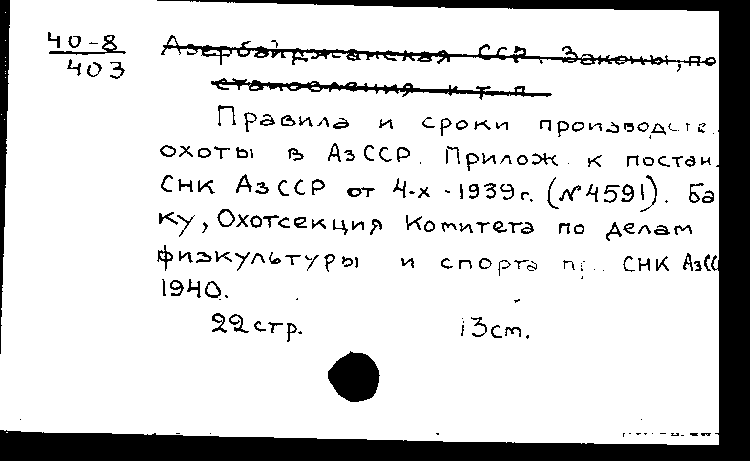 40-8
403
Азербайджанская ССР. Законы, по
становления и т. п.
Правила и сроки производств
охоты в АзССР. Прилож. к постан.
СНК АзССР от 4-х-1939г. (№4591). Ба
ку, Охотсекция Комитета по делам
физкультуры и спорта СНК АзСС
1940.
22 стр. 13 см.